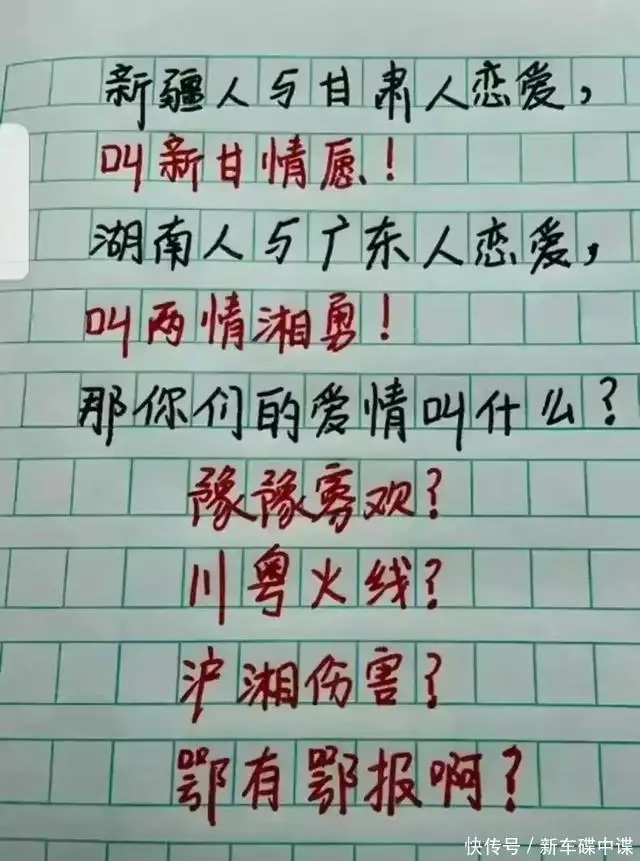 新疆人与甘肃人恋爱，
叫新甘情愿！
湖南人与广东人恋爱，
叫两情湘勇！
那你们的爱情叫什么？
豫豫寡欢？
川粤火线？
沪湘伤害？
鄂有鄂报啊？
快传号／新车碟中谍